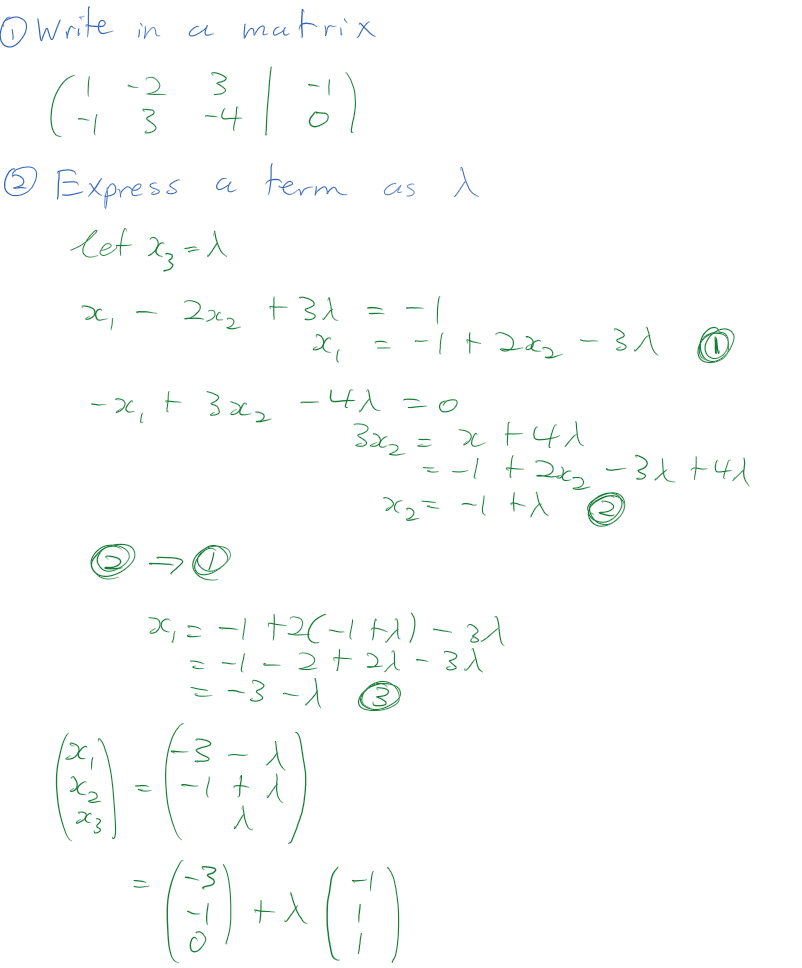 ① Write in a matrix
( 1 -2 3 | -1 )
( -1 3 -4 | 0 )
② Express a term as λ
let x₃ = λ
x₁ - 2x₂ + 3λ = -1
x₁ = -1 + 2x₂ - 3λ ①
-x₁ + 3x₂ - 4λ = 0
3x₂ = x + 4λ
= -1 + 2x₂ - 3λ + 4λ
x₂ = -1 + λ ②
② ⇒ ①
x₁ = -1 + 2(-1 + λ) - 3λ
= -1 - 2 + 2λ - 3λ
= -3 - λ ③
( x₁ ) ( -3 - λ )
( x₂ ) = ( -1 + λ )
( x₃ ) ( λ )
( -3 ) ( -1 )
= ( -1 ) + λ ( 1 )
( 0 ) ( 1 )